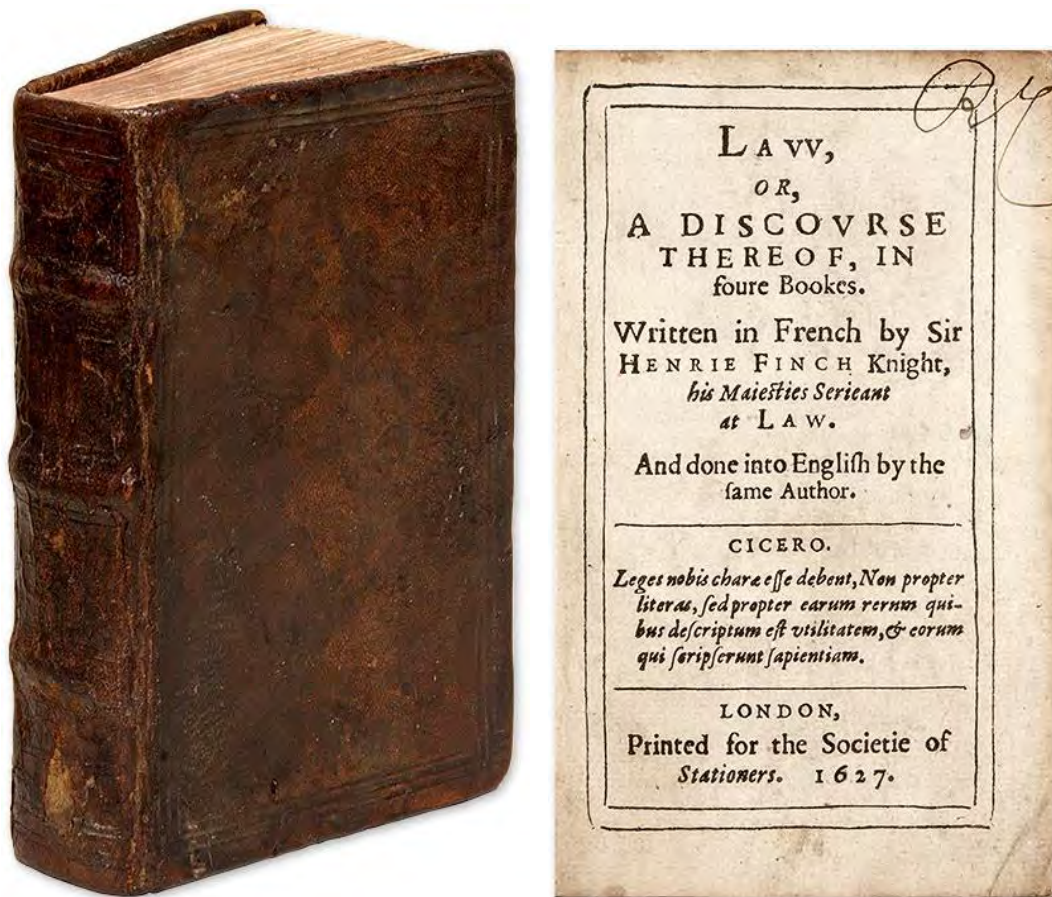 LAVV,
OR,
A DISCOVRSE
THEREOF, IN
foure Bookes.
Written in French by Sir
HENRIE FINCH Knight,
his Maiesties Serieant
at LAW.
And done into Engliſh by the
ſame Author.
CICERO.
Leges nobis charæ eſſe debent, Non propter
literas, ſed propter earum rerum qui-
bus deſcriptum eſt vtilitatem, & eorum
qui ſcripſerunt ſapientiam.
LONDON,
Printed for the Societie of
Stationers. 1627.